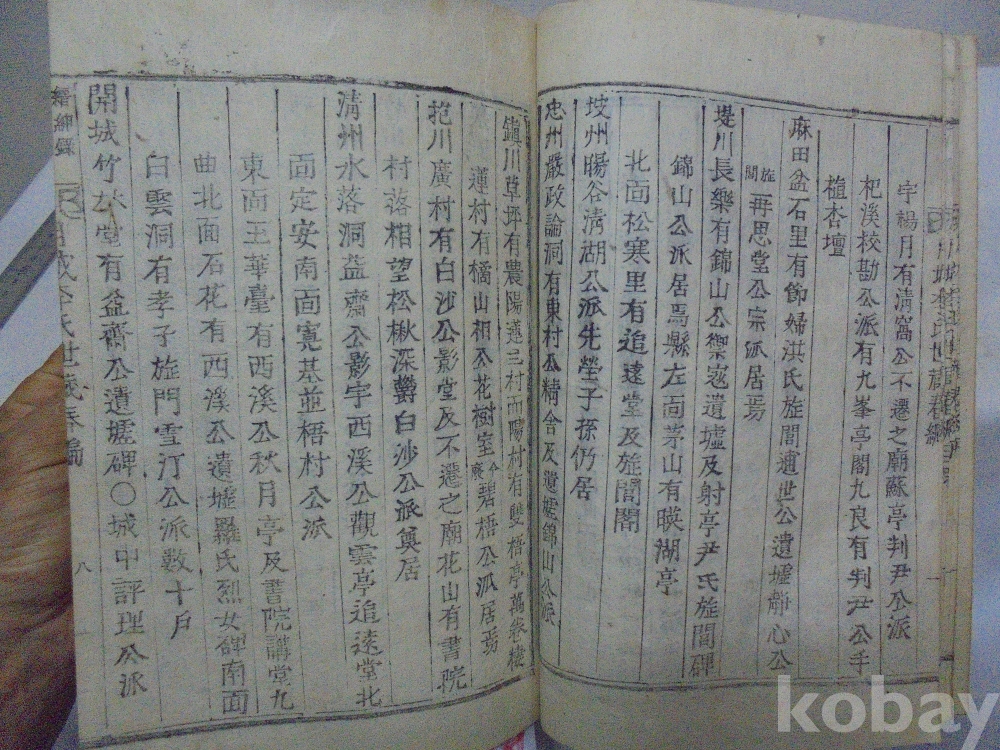 宇楊月有淸窩公不遷之廟蘇亭判尹公派
杞溪校勘公派有九峯亭閣九良有判尹公手
植杏壇
麻田盆石里有節婦洪氏旌閭遺世公遺墟靜心公
旌閭再思堂公宗派居焉
堤川長樂有錦山公禦寇遺墟及射亭尹氏旌閭碑
錦山公派居焉縣左面茅山有暎湖亭
北面松寒里有追遠堂及旌閭閣
坡州暘谷淸湖公派先塋子孫仍居
忠州嚴政論洞有東村公精舍及遺墟錦山公派
鎭川草坪有農陽蓮三村而陽村有雙梧亭萬卷樓
蓮村有橘山相公花樹室今廢碧梧公派居焉
抱川廣村有白沙公影堂及不遷之廟花山有書院
村落相望松楸深欝白沙公派奠居
淸州水落洞益齋公影宇西溪公觀雲亭追遠堂北
面定安南面寬基並梧村公派
東面玉華臺有西溪公秋月亭及書院講堂九
曲北面石花有西溪公遺墟羅氏烈女碑南面
白雲洞有孝子旌門雪汀公派数十戶
開城竹林堂有益齋公遺墟碑○城中評理公派
縉紳錄
八
kobay